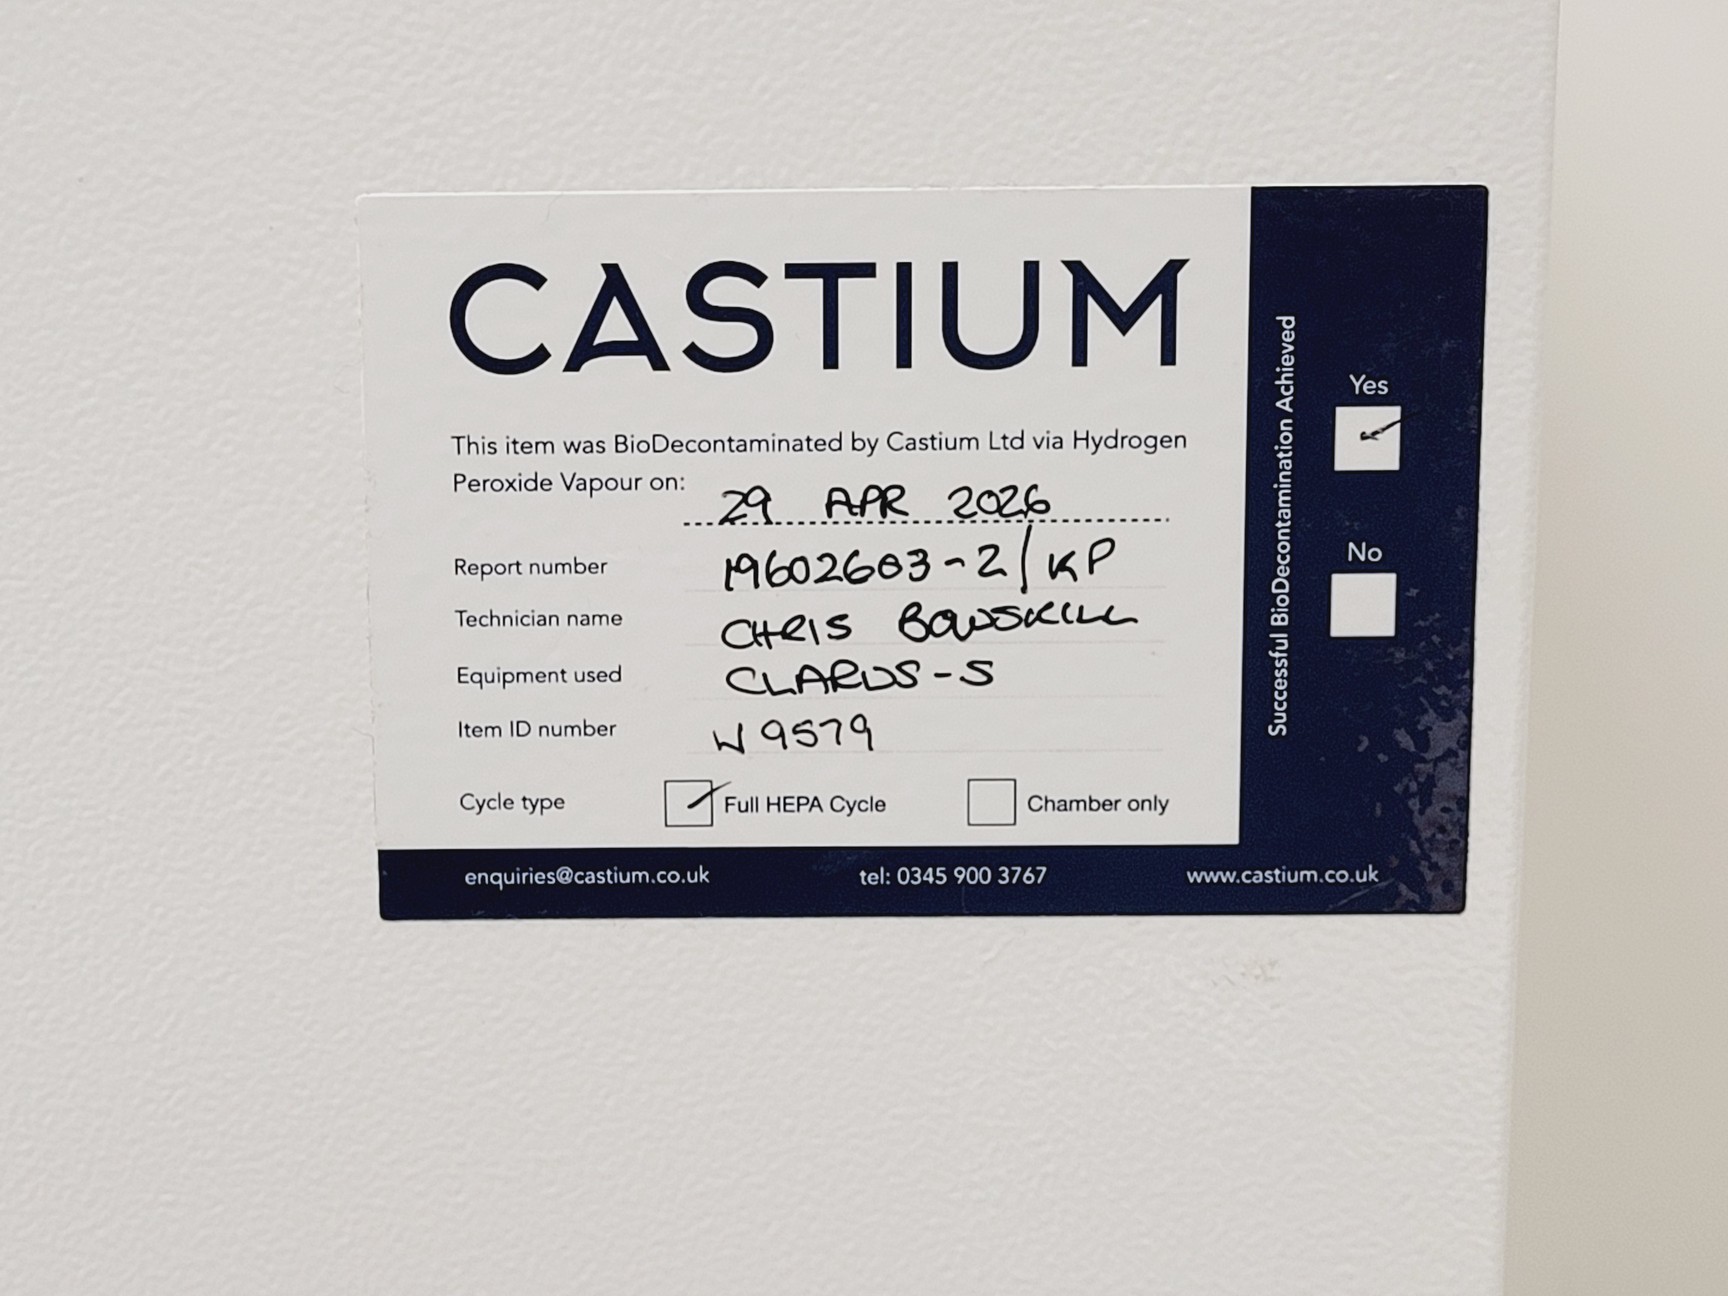 CASTIUM
This item was BioDecontaminated by Castium Ltd via Hydrogen
Peroxide Vapour on: 29 APR 2026
Report number 19602603-2/KP
Technician name CHRIS BOWSKILL
Equipment used CLARUS-S
Item ID number W9579
Cycle type Full HEPA Cycle Chamber only
enquiries@castium.co.uk tel: 0345 900 3767 www.castium.co.uk
Successful BioDecontamination Achieved
Yes
No